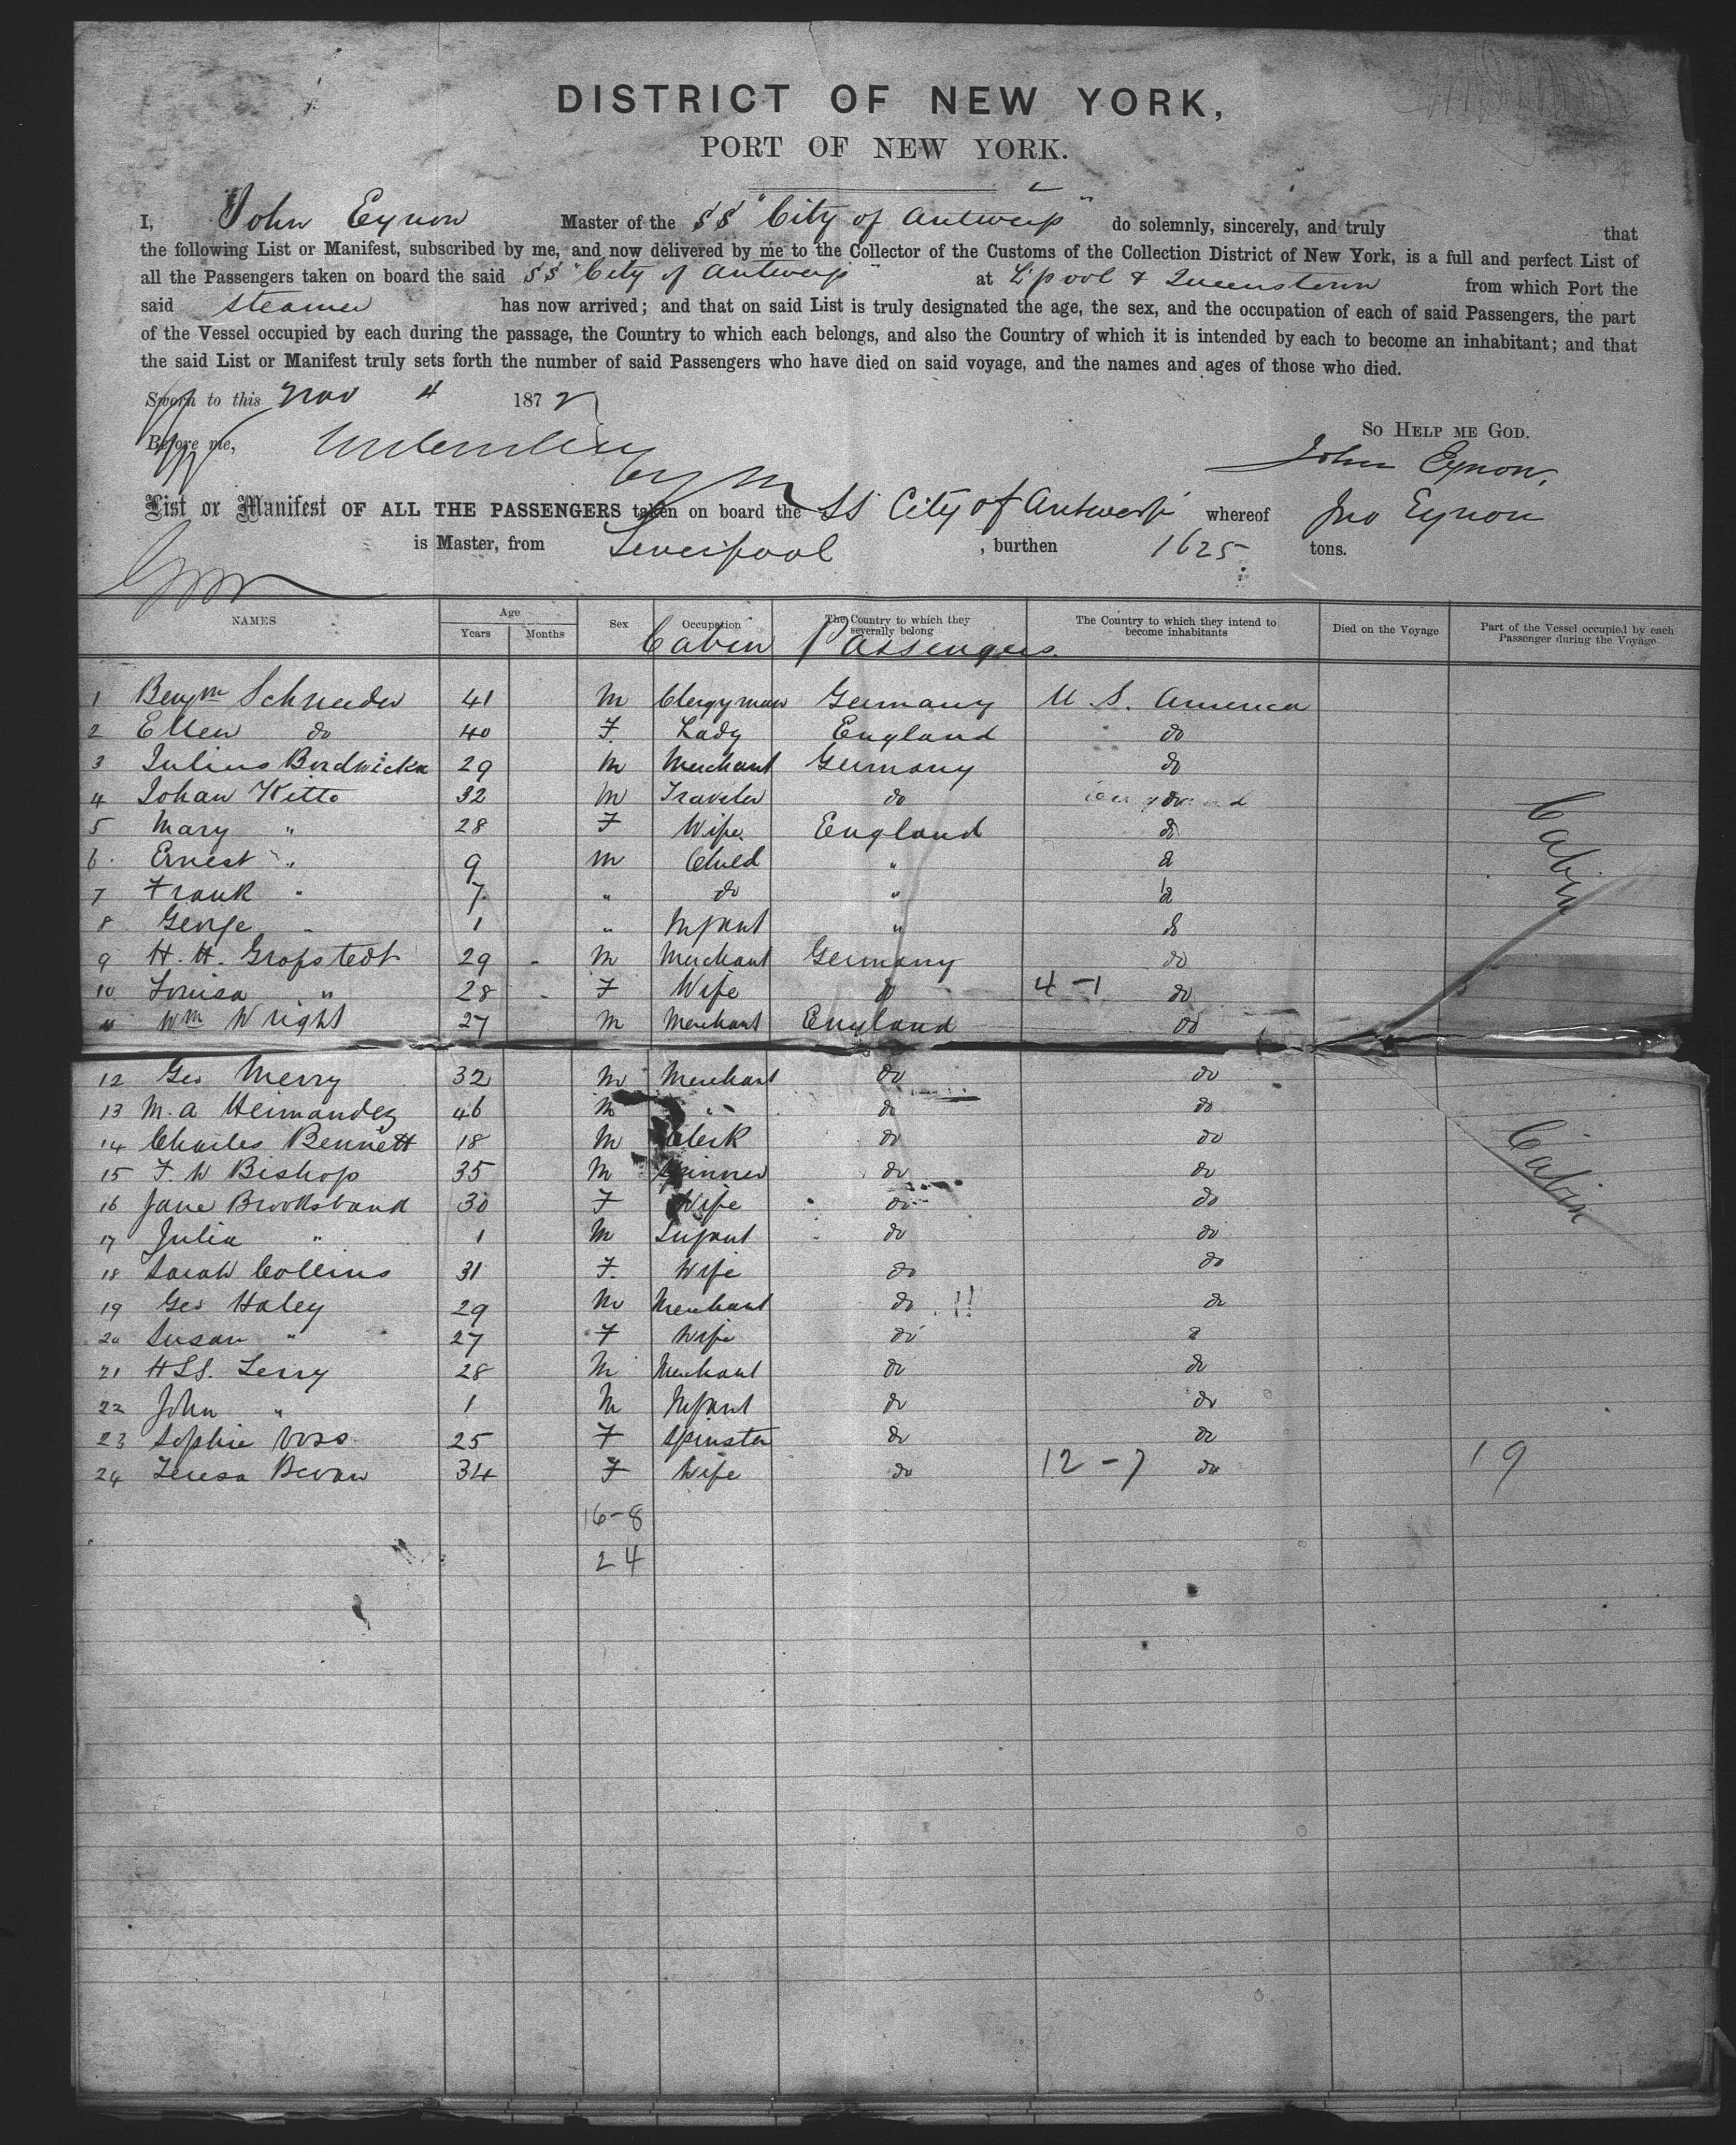 DISTRICT OF NEW YORK,
PORT OF NEW YORK.
I, John Eynon Master of the SS "City of Antwerp" do solemnly, sincerely, and truly that
the following List or Manifest, subscribed by me, and now delivered by me to the Collector of the Customs of the Collection District of New York, is a full and perfect List of
all the Passengers taken on board the said SS "City of Antwerp" at L'pool & Queenstown from which Port the
said steamer has now arrived; and that on said List is truly designated the age, the sex, and the occupation of each of said Passengers, the part
of the Vessel occupied by each during the passage, the Country to which each belongs, and also the Country of which it is intended by each to become an inhabitant; and that
the said List or Manifest truly sets forth the number of said Passengers who have died on said voyage, and the names and ages of those who died.
Sworn to this Nov 4 1872
So Help me God.
Before me,
John Eynon.
List or Manifest OF ALL THE PASSENGERS taken on board the SS City of Antwerp whereof Jno Eynon
is Master, from Liverpool , burthen 1625 tons.
NAMES Age Years Months Sex Occupation The Country to which they severally belong The Country to which they intend to become inhabitants Died on the Voyage Part of the Vessel occupied by each Passenger during the Voyage
Cabin Passengers.
1 Benjm Schneider 41 M Clergyman Germany U.S. America
2 Ellen do 40 F. Lady England do
3 Julius 29 M Merchant Germany do
4 Johan Kitto 32 M Traveler do do
5 Mary " 28 F Wife England do
6 Ernest " 9 M Child " do
7 Frank " 7 " do " do
8 George " 1 " Infant " do
Cabin
9 H. H. Grofstedt 29 M Merchant Germany do
10 Louisa " 28 F Wife do 4-1 do
11 Wm Wright 27 M Merchant England do
12 Geo Merry 32 M Merchant do do
13 M. A Hernandez 46 M " do do
14 Charles Bennett 18 M Clerk do do
15 F. W Bishop 35 M Spinner do do
Cabin
16 Jane Brooksbank 30 F Wife do do
17 Julia " 1 M Infant do do
18 Sarah Collins 31 F. Wife do do
19 Geo Haley 29 M Merchant do do
20 Susan " 27 F Wife do do
21 H.S.S. Terry 28 M Merchant do do
22 John " 1 M Infant do do
23 Sophie Voss 25 F Spinster do do
24 Teresa Bevan 34 F Wife do 12-7 do 19
16-8
24